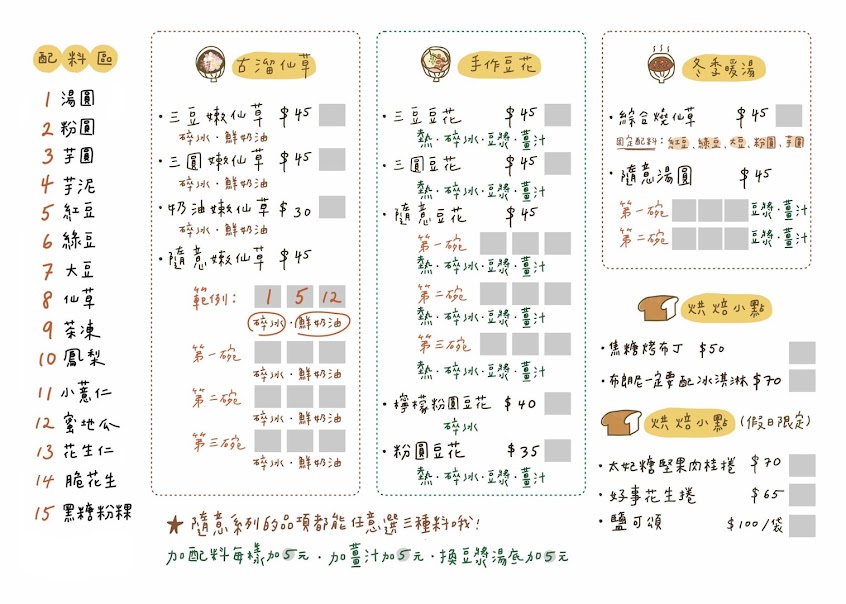 配料區
1 湯圓
2 粉圓
3 芋圓
4 芋泥
5 紅豆
6 綠豆
7 大豆
8 仙草
9 茶凍
10 鳳梨
11 小薏仁
12 蜜地瓜
13 花生仁
14 脆花生
15 黑糖粉粿
古溜仙草
・三豆嫩仙草 $45
碎冰・鮮奶油
・三圓嫩仙草 $45
碎冰・鮮奶油
・奶油嫩仙草 $30
碎冰・鮮奶油
・隨意嫩仙草 $45
範例: 1 5 12
碎冰・鮮奶油
第一碗
碎冰・鮮奶油
第二碗
碎冰・鮮奶油
第三碗
碎冰・鮮奶油
手作豆花
・三豆豆花 $45
熱・碎冰・豆漿・薑汁
・三圓豆花 $45
熱・碎冰・豆漿・薑汁
・隨意豆花 $45
第一碗
熱・碎冰・豆漿・薑汁
第二碗
熱・碎冰・豆漿・薑汁
第三碗
熱・碎冰・豆漿・薑汁
・檸檬粉圓豆花 $40
碎冰
・粉圓豆花 $35
熱・碎冰・豆漿・薑汁
冬季暖湯
・綜合燒仙草 $45
固定配料:紅豆、綠豆、大豆、粉圓、芋圓
・隨意湯圓 $45
第一碗 豆漿・薑汁
第二碗 豆漿・薑汁
烘焙小點
・焦糖烤布丁 $50
・布朗尼一定要配冰淇淋 $70
烘焙小點(假日限定)
・太妃糖堅果肉桂捲 $70
・好事花生捲 $65
・鹽可頌 $100/袋
★ 隨意系列的品項都能任意選三種料哦!
加配料每樣加5元・加薑汁加5元・換豆漿湯底加5元